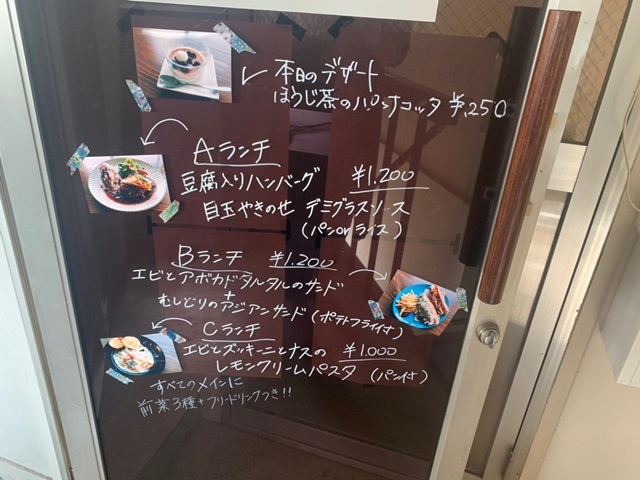 本日のデザート
ほうじ茶のパンナコッタ ¥,250
Aランチ
豆腐入りハンバーグ ¥1.200
目玉やきのせ デミグラスソース
(パンorライス)
Bランチ ¥1.200
エビとアボカドタルタルのサンド
+
むしどりのアジアンサンド(ポテトフライ付)
Cランチ
エビとズッキーニとナスの ¥1.000
レモンクリームパスタ (パン付)
すべてのメインに
前菜3種+フリードリンクつき!!